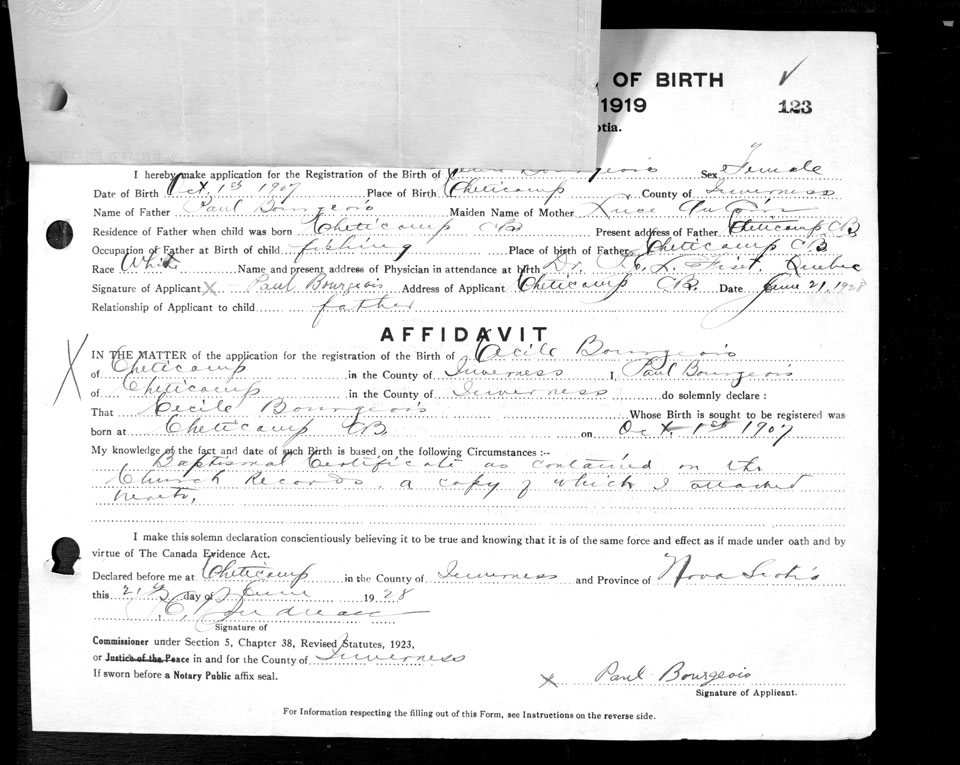 OF BIRTH
1919
123
otia.
I hereby make application for the Registration of the Birth of Bourgeois Sex Female
Date of Birth Oct. 1st 1907 Place of Birth Cheticamp County of Inverness
Name of Father Paul Bourgeois Maiden Name of Mother Luce
Residence of Father when child was born Cheticamp CB Present address of Father Cheticamp CB
Occupation of Father at Birth of child fishing Place of birth of Father Cheticamp CB
Race White Name and present address of Physician in attendance at birth Dr. L. Fiset, Quebec
Signature of Applicant X Paul Bourgeois Address of Applicant Cheticamp CB. Date June 21, 1928
Relationship of Applicant to child father
AFFIDAVIT
X
IN THE MATTER of the application for the registration of the Birth of Cecile Bourgeois
of Cheticamp in the County of Inverness I, Paul Bourgeois
of Cheticamp in the County of Inverness do solemnly declare :
That Cecile Bourgeois Whose Birth is sought to be registered was
born at Cheticamp CB. on Oct 1st 1907
My knowledge of the fact and date of such Birth is based on the following Circumstances :-
Baptismal Certificate as contained on the
Church Records, a copy of which I attached
hereto.
I make this solemn declaration conscientiously believing it to be true and knowing that it is of the same force and effect as if made under oath and by
virtue of The Canada Evidence Act.
Declared before me at Cheticamp in the County of Inverness and Province of Nova Scotia
this 21st day of June 1928
Signature of
Commissioner under Section 5, Chapter 38, Revised Statutes, 1923,
or Justice of the Peace in and for the County of Inverness
If sworn before a Notary Public affix seal.
X Paul Bourgeois
Signature of Applicant.
For Information respecting the filling out of this Form, see Instructions on the reverse side.